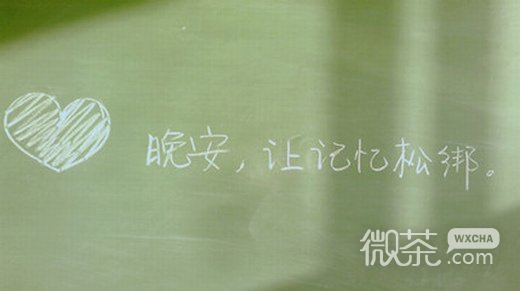 晚安，让记忆松绑。
微茶
WXCHA
.com